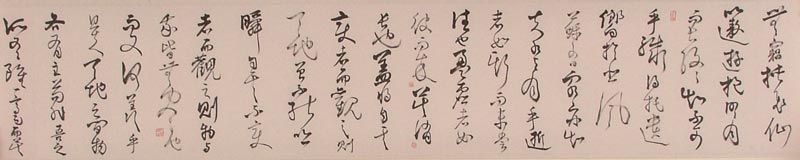 無窮挾飛仙
以遨遊抱明月
而長終知不可
乎驟得托遺
響於悲風
蘇子曰客亦知
夫水與月乎逝
者如斯而未嘗
往也盈虛者如
彼而卒莫消
長也蓋將自其
變者而觀之則
天地曾不能以一
瞬自其不變
者而觀之則物與
我皆無盡也
而又何羨乎
且夫天地之間物
各有主苟非吾之
所有雖一毫而莫